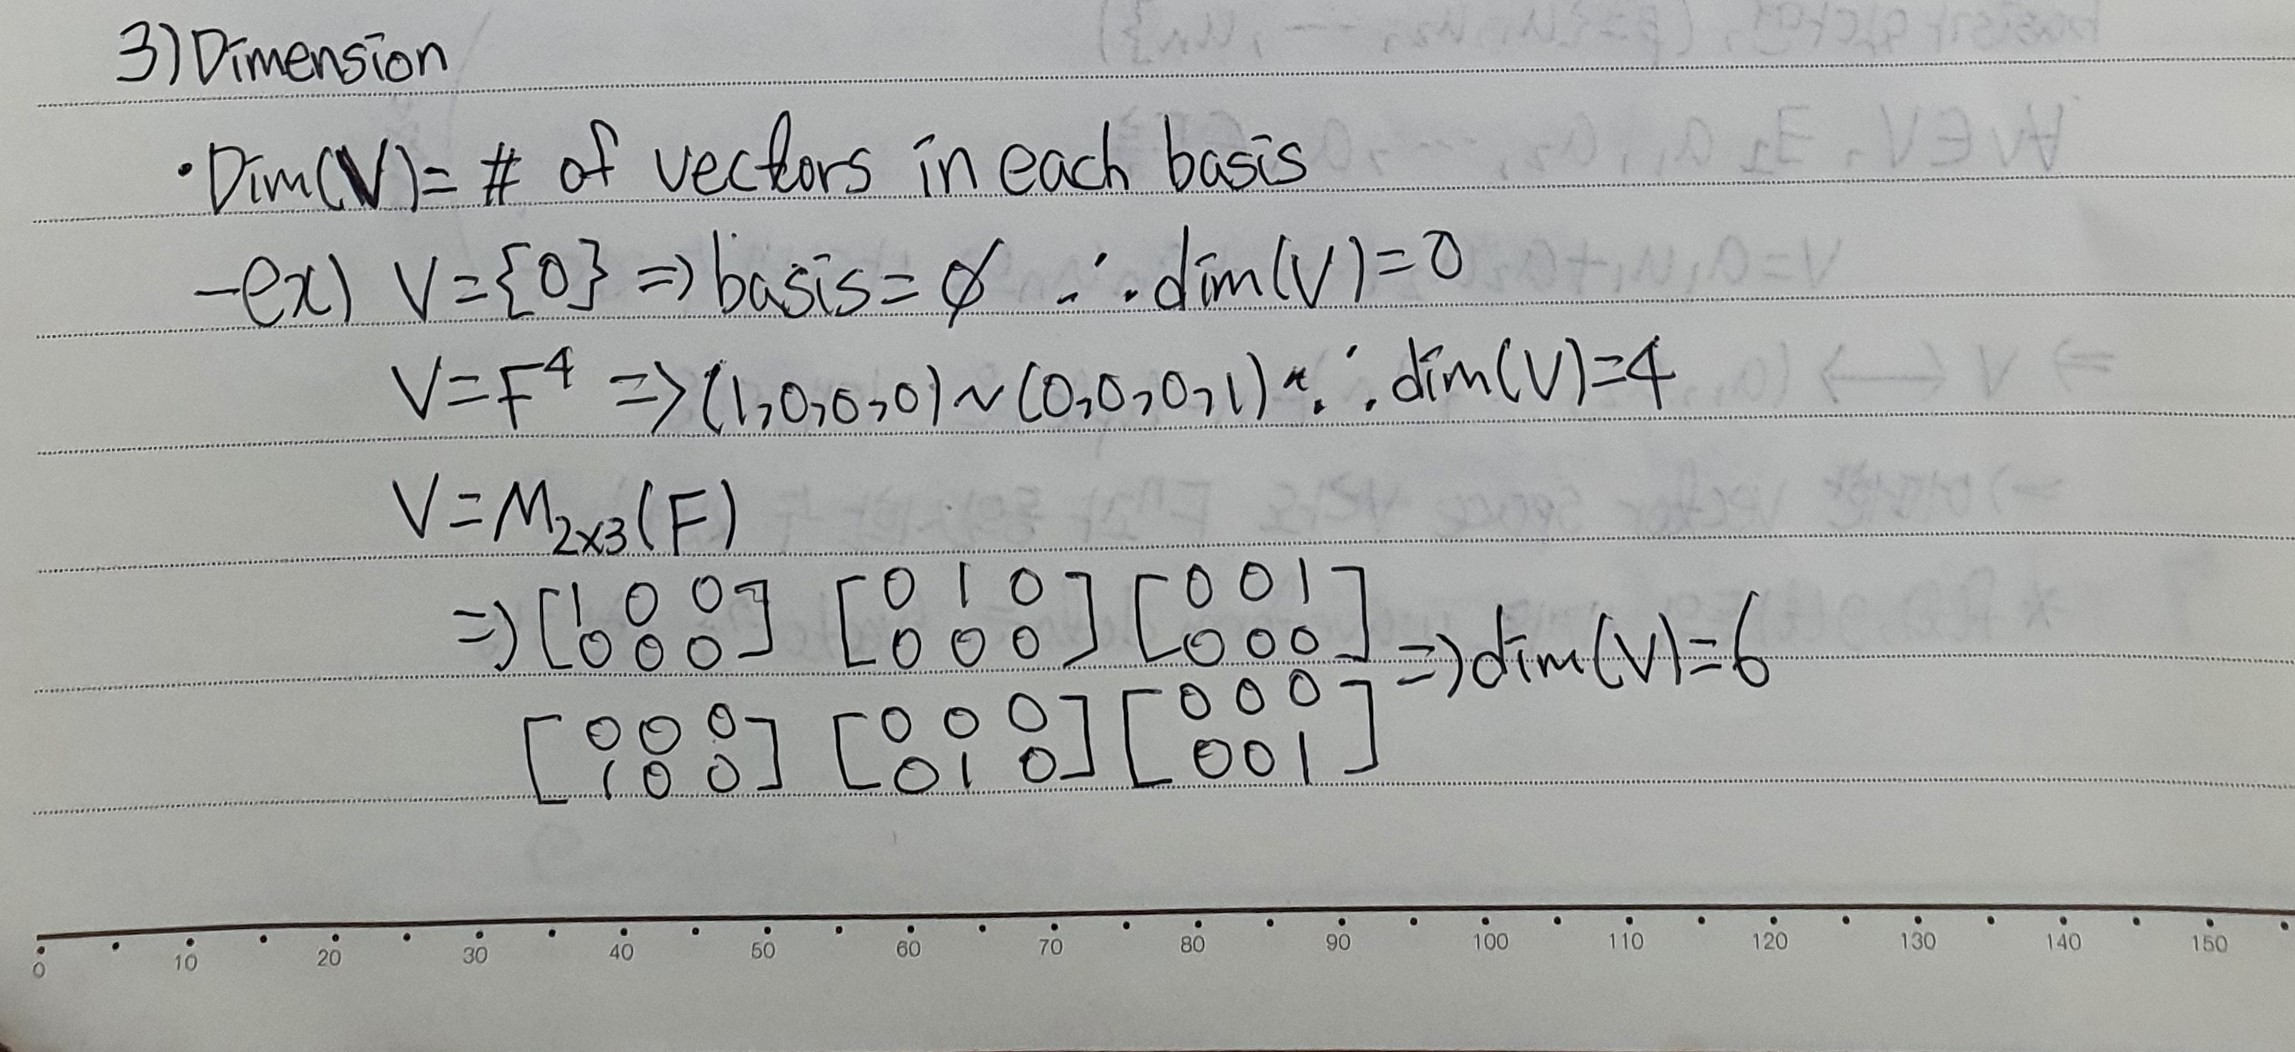 3) Dimension
· Dim(V) = # of vectors in each basis
- ex) V = {0} ⇒ basis = ∅ ∴ dim(V) = 0
V = F⁴ ⇒ (1,0,0,0) ~ (0,0,0,1) ∴ dim(V) = 4
V = M₂ₓ₃(F)
⇒ [1 0 0 / 0 0 0] [0 1 0 / 0 0 0] [0 0 1 / 0 0 0]
[0 0 0 / 1 0 0] [0 0 0 / 0 1 0] [0 0 0 / 0 0 1] ⇒ dim(V) = 6
0 10 20 30 40 50 60 70 80 90 100 110 120 130 140 150